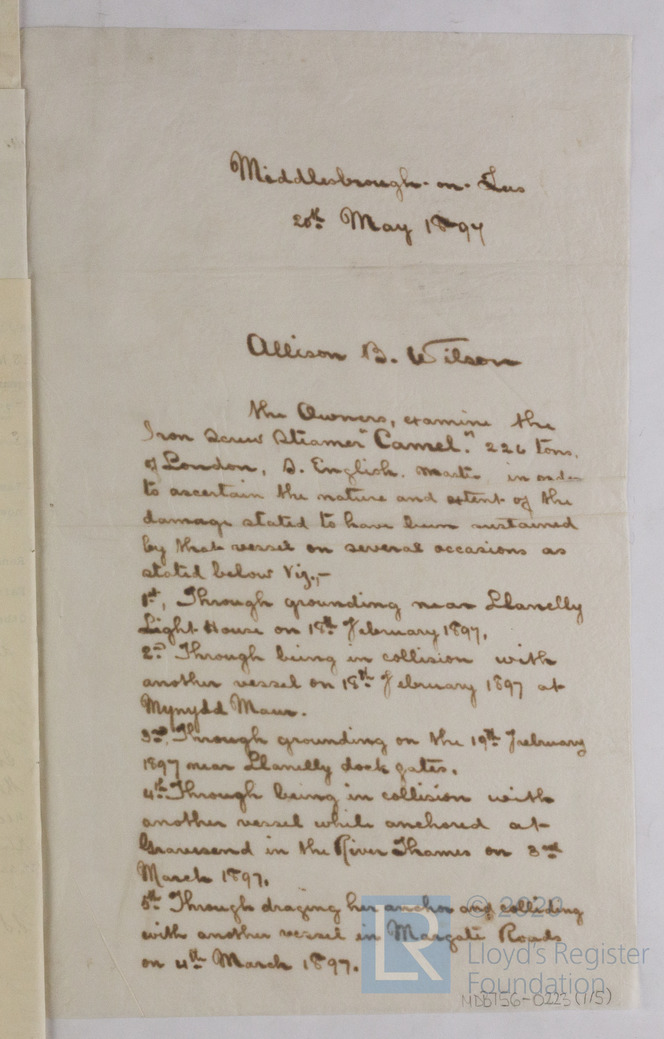 Middlesbrough-on-Tees
20th May 1897
Allison B. Wilson
the Owners, examine the
Iron Screw Steamer "Camel." 226 tons,
of London, S. English. Master, in order
to ascertain the nature and extent of the
damage stated to have been sustained
by that vessel on several occasions as
stated below Viz.,-
1st, Through grounding near Llanelly
Light House on 18th February 1897,
2nd Through being in collision with
another vessel on 18th February 1897 at
Mynydd Maur.
3rd, Through grounding on the 19th February
1897 near Llanelly dock gates.
4th Through being in collision with
another vessel while anchored at
Gravesend in the River Thames on 3rd
March 1897.
5th Through draging her anchor and colliding
with another vessel in Margate Roads
on 4th March 1897.
LR
© 2020
Lloyd's Register
Foundation
NDB756-0223 (1/5)